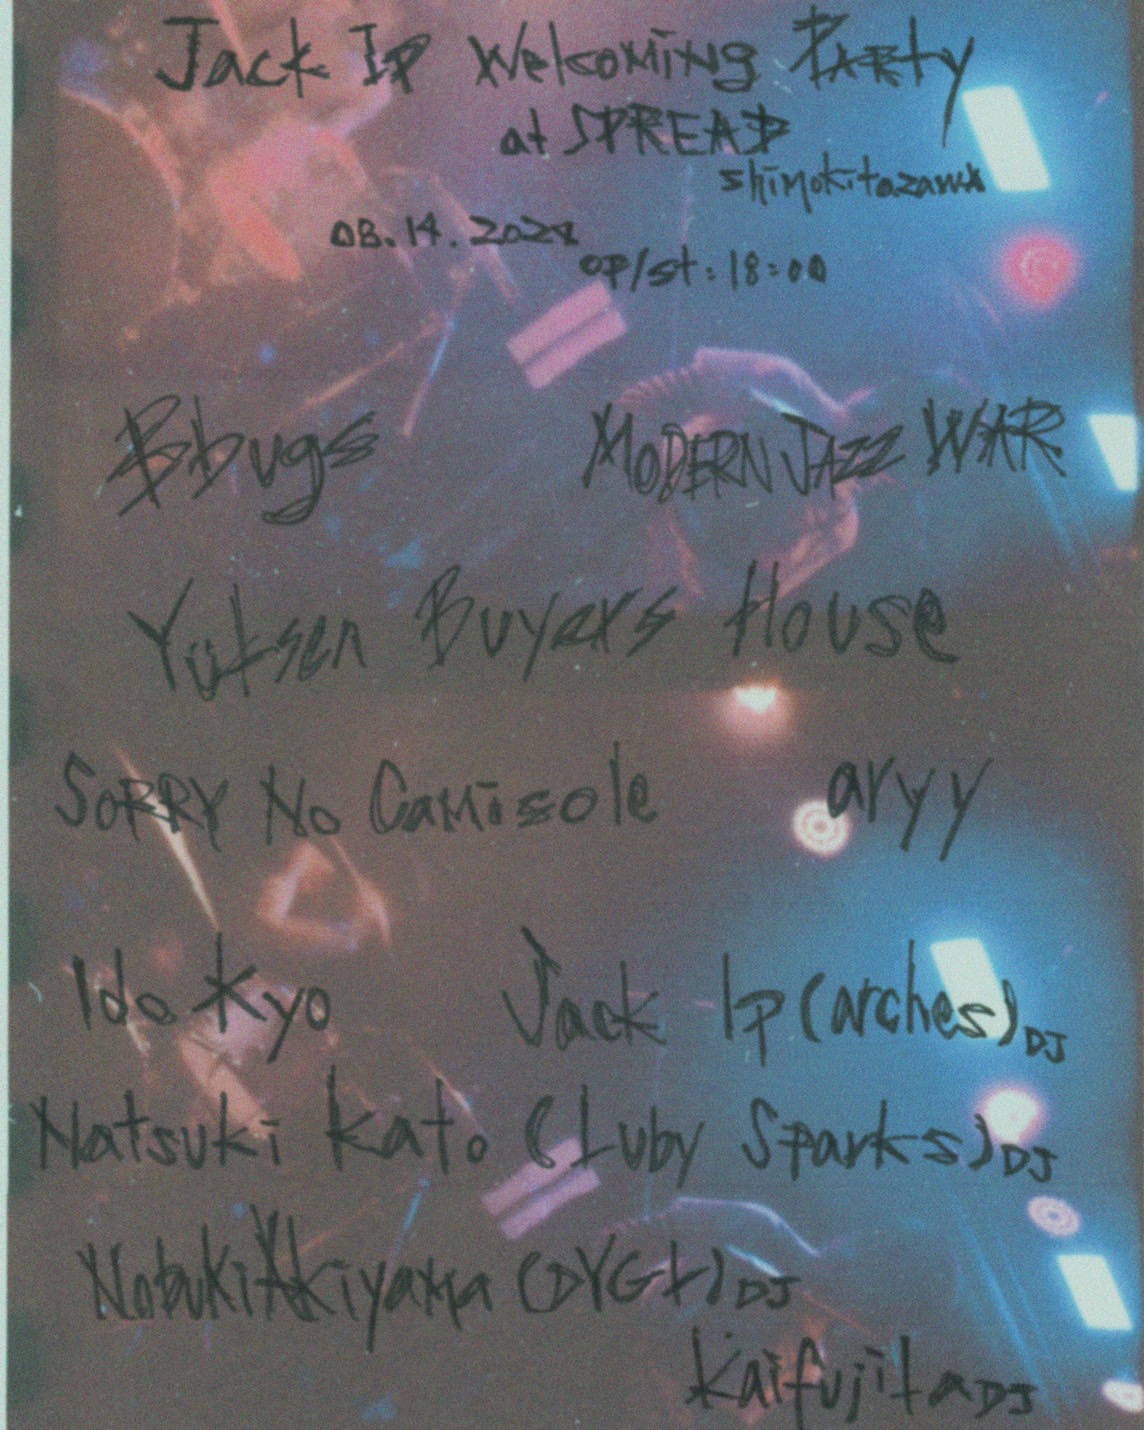 Jack Ip Welcoming Party
at SPREAD
shimokitazawa
08.14.2024
op/st:18:00
Bbugs MODERN JAZZ WAR
Yüksen Buyers House
SORRY No Camisole aryy
Ido Kyo Jack Ip (arches) DJ
Natsuki Kato (Luby Sparks) DJ
Nobuki Akiyama (DYGL) DJ
kaifujita DJ